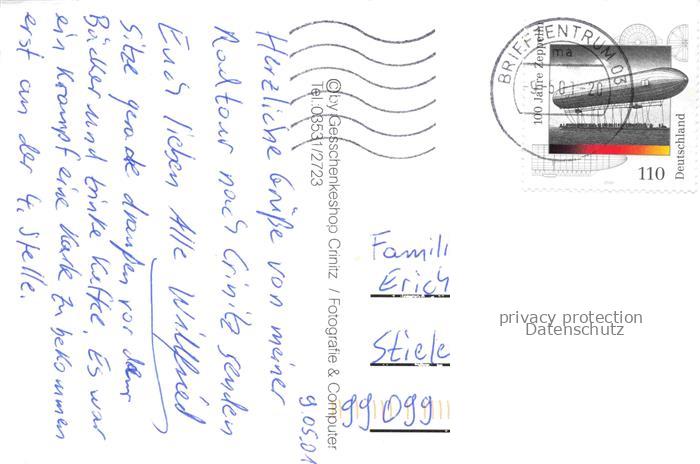 Herzliche Grüße von meiner
Radtour nach Crinitz senden
Euch lieben Alle Willfried
Sitze gerade draußen vor dem
Bäcker und trinke Kaffee. Es war
ein Krampf eine Karte zu bekommen
erst an der 4. Stelle.
9.05.01
©by Gesschenkeshop Crinitz / Fotografie & Computer
Tel. 03531/2723
BRIEFZENTRUM 03
ma
-9.-5.01-20
100 Jahre Zeppelin
110
Deutschland
Famili
Erich
Stiele
99099
privacy protection
Datenschutz